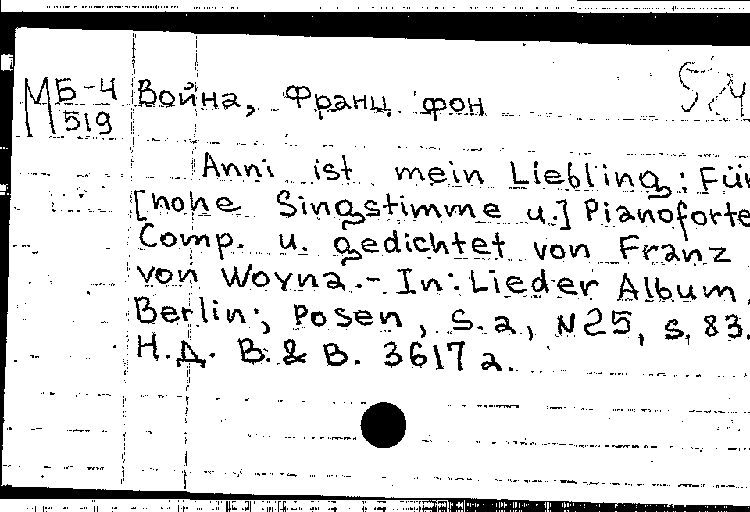 МБ-4 Война, Франц фон 54
519
Anni ist mein Liebling: Für
[hohe Singstimme u.] Pianoforte
Comp. u. gedichtet von Franz
von Woyna.- In: Lieder Album.
Berlin; Posen, S.a, N25, S. 83.
Н.Д. B. & B. 3617 a.